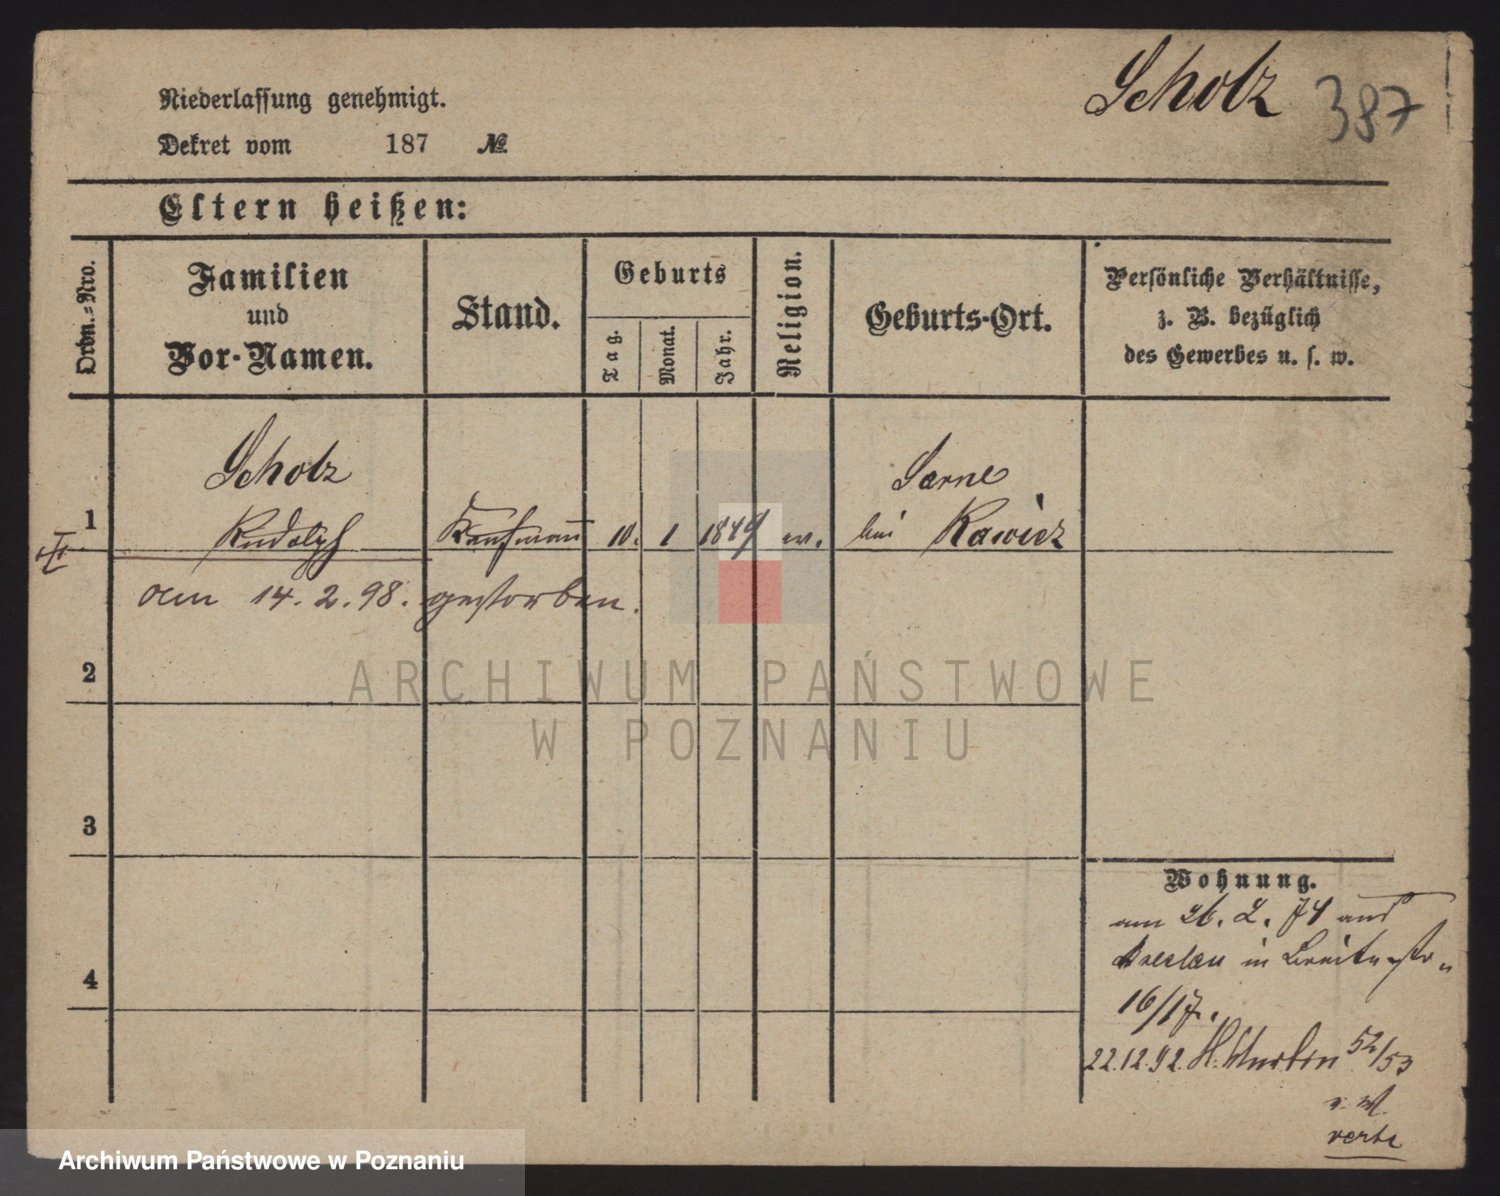 Scholz 387
Niederlassung genehmigt.
Dekret vom 187 №
Eltern heißen:
Ordn.-Nro.
Familien
und
Vor-Namen.
Stand.
Geburts
Tag.
Monat.
Jahr.
Religion.
Geburts-Ort.
Persönliche Verhältnisse,
z. B. bezüglich
des Gewerbes u. s. w.
Scholz Sarne
1 Rudolph Kaufmann 10. 1 1849 ev. bei Rawicz
am 14.2.98. gestorben.
2
ARCHIWUM PAŃSTWOWE
W POZNANIU
3
4
Wohnung.
am 26. 2. 74 aus
Breslau in Breitestr.
16/17.
22.12.92. St. Martin 52/53
verte
Archiwum Państwowe w Poznaniu